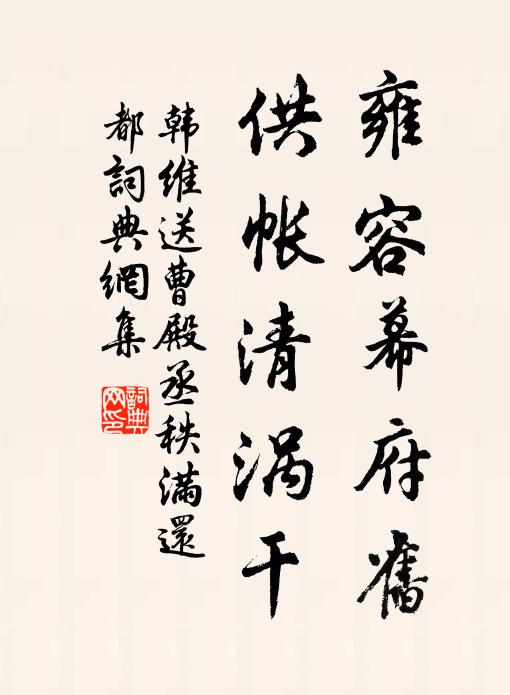 雍容幕府舊
供帐清涡干
韩维送曹殿丞秩滿還
都詞典網集
詞典
网印